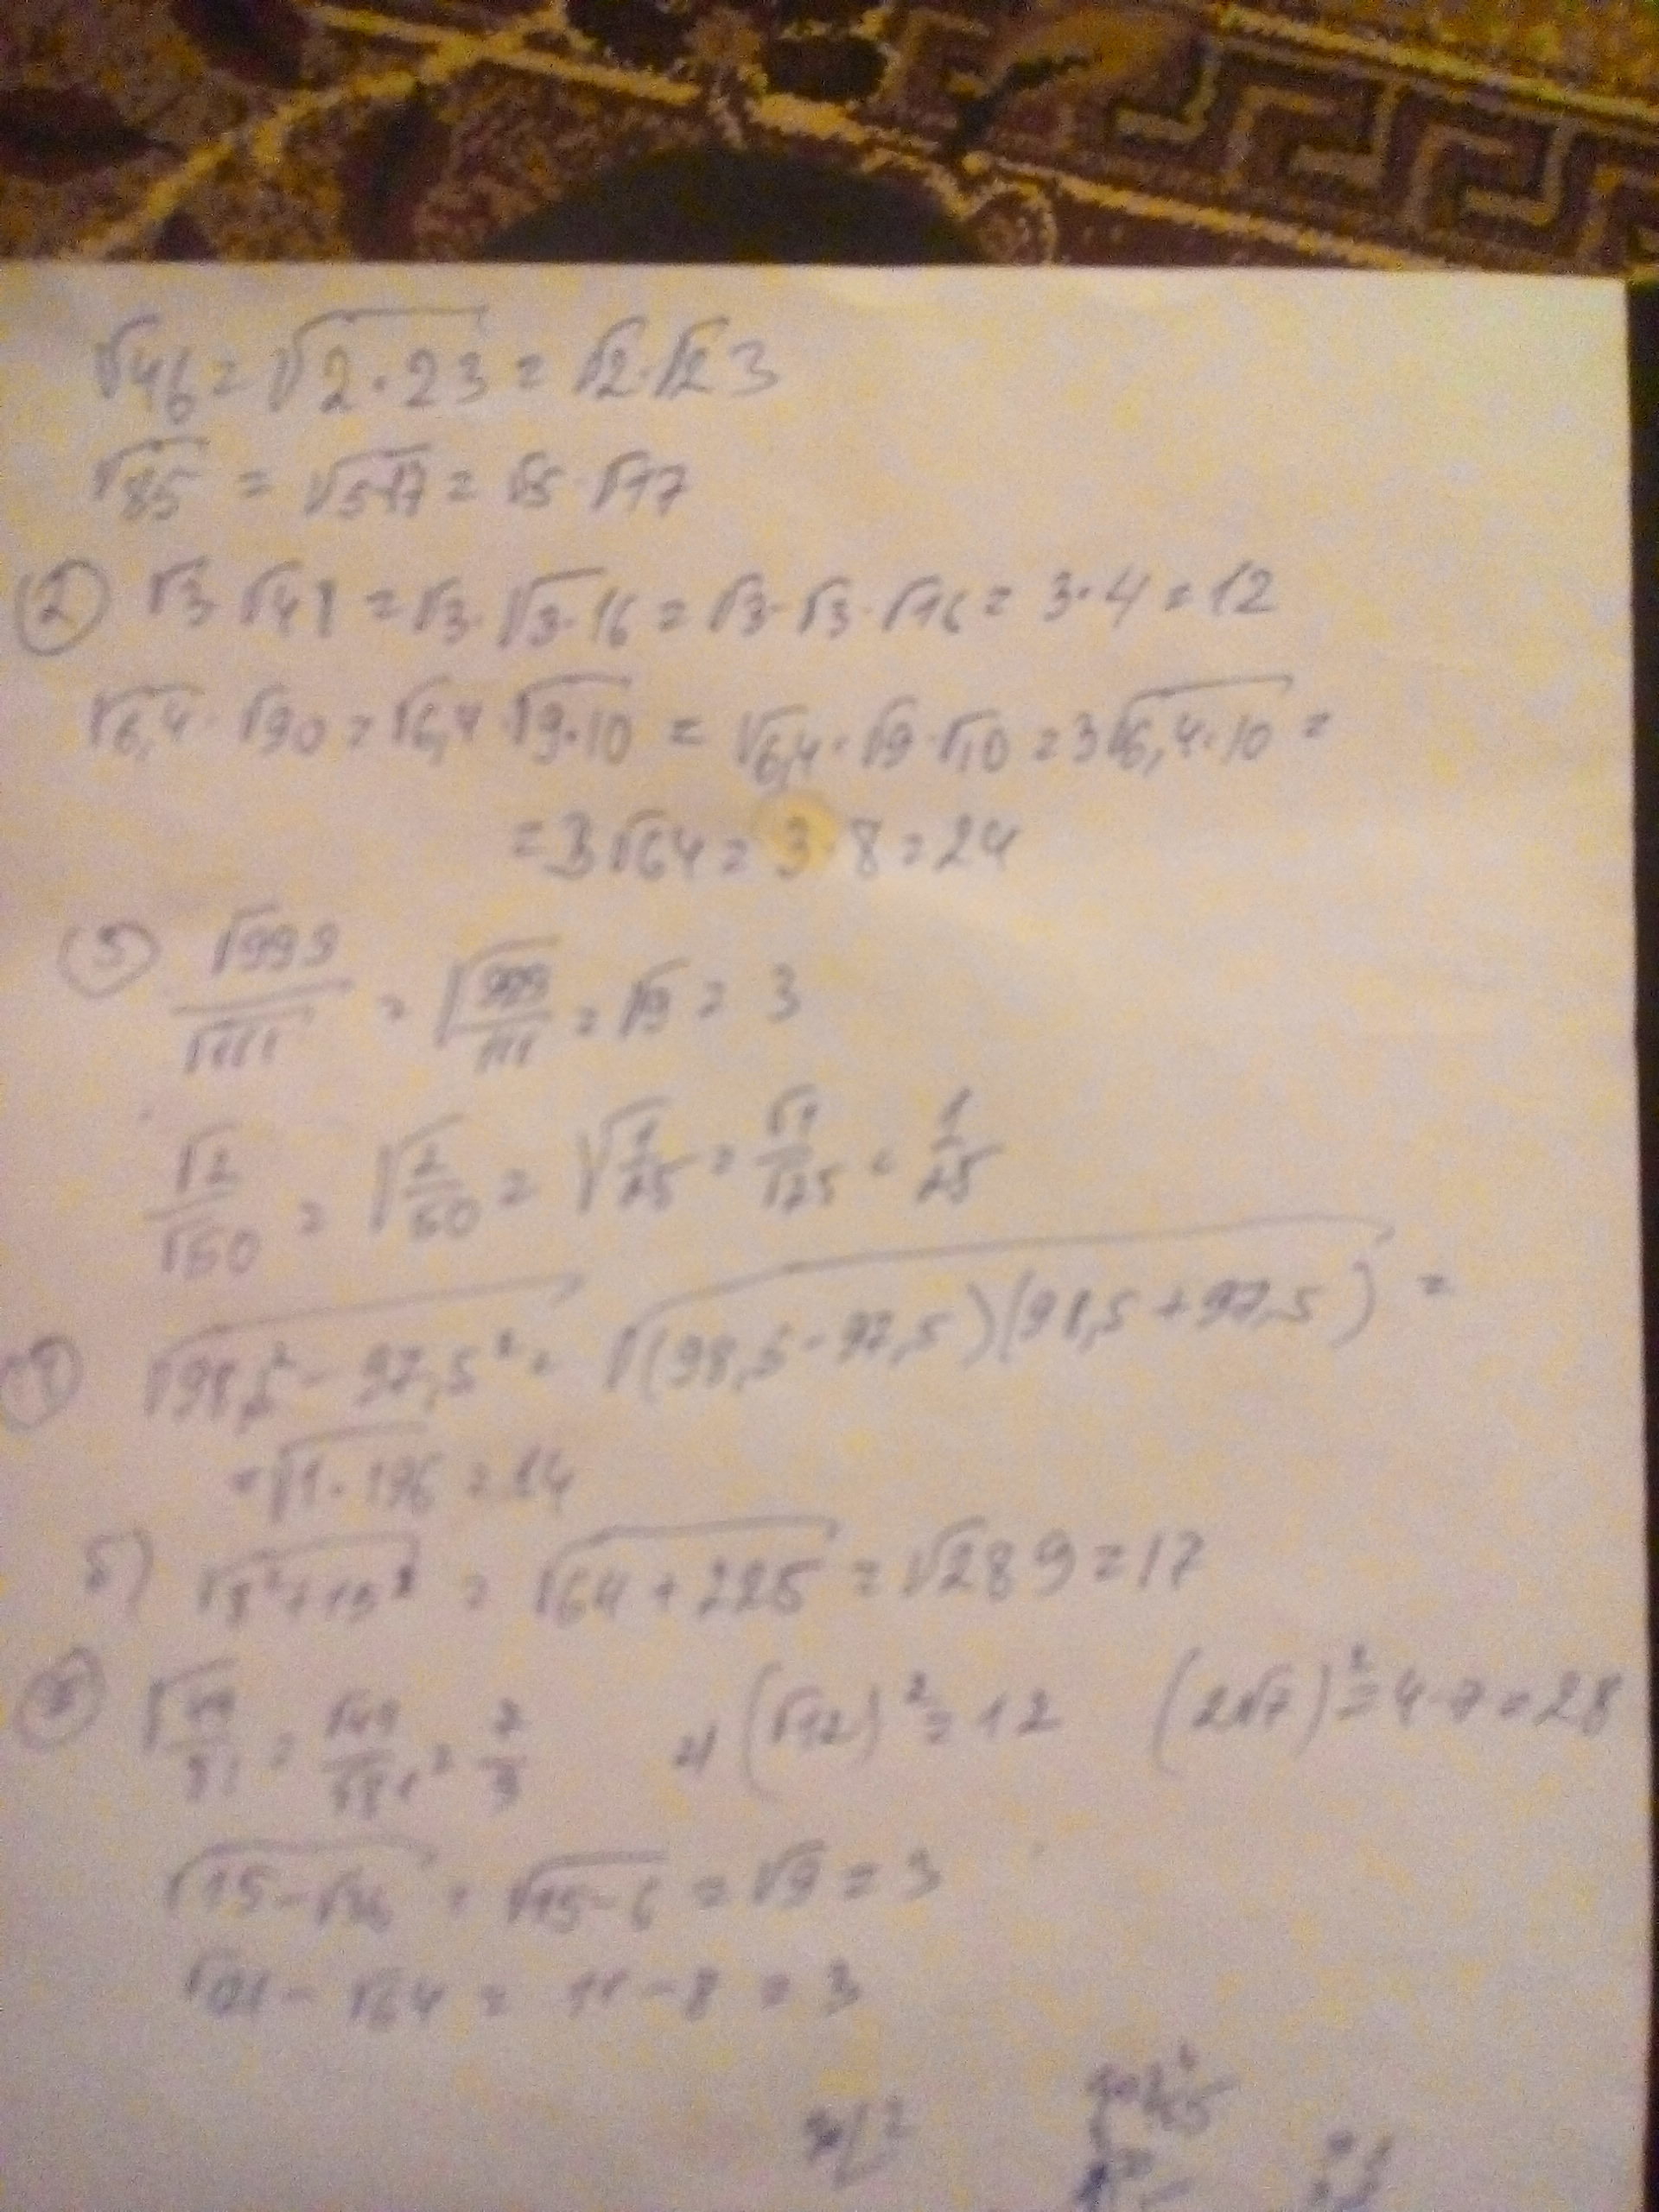 √46 = √2·23 = √2·√23
√85 = √5·17 = √5·√17
② √3·√48 = √3·√3·16 = √3·√3·√16 = 3·4 = 12
√6,4·√90 = √6,4·√9·10 = √6,4·√9·√10 = 3√6,4·10 =
= 3√64 = 3·8 = 24
③ √999/√111 = √999/111 = √9 = 3
√2/√50 = √2/50 = √1/25 = √1/√25 = 1/25
④ √98,5² - 97,5² = √(98,5-97,5)(98,5+97,5) =
= √1·196 = 14
5) √8²+15² = √64+225 = √289 = 17
√49/81 = √49/√81 = 7/9 и (√12)² = 12 (2√7)² = 4·7 = 28
√15-√36 = √15-6 = √9 = 3
√121 - √64 = 11-8 = 3